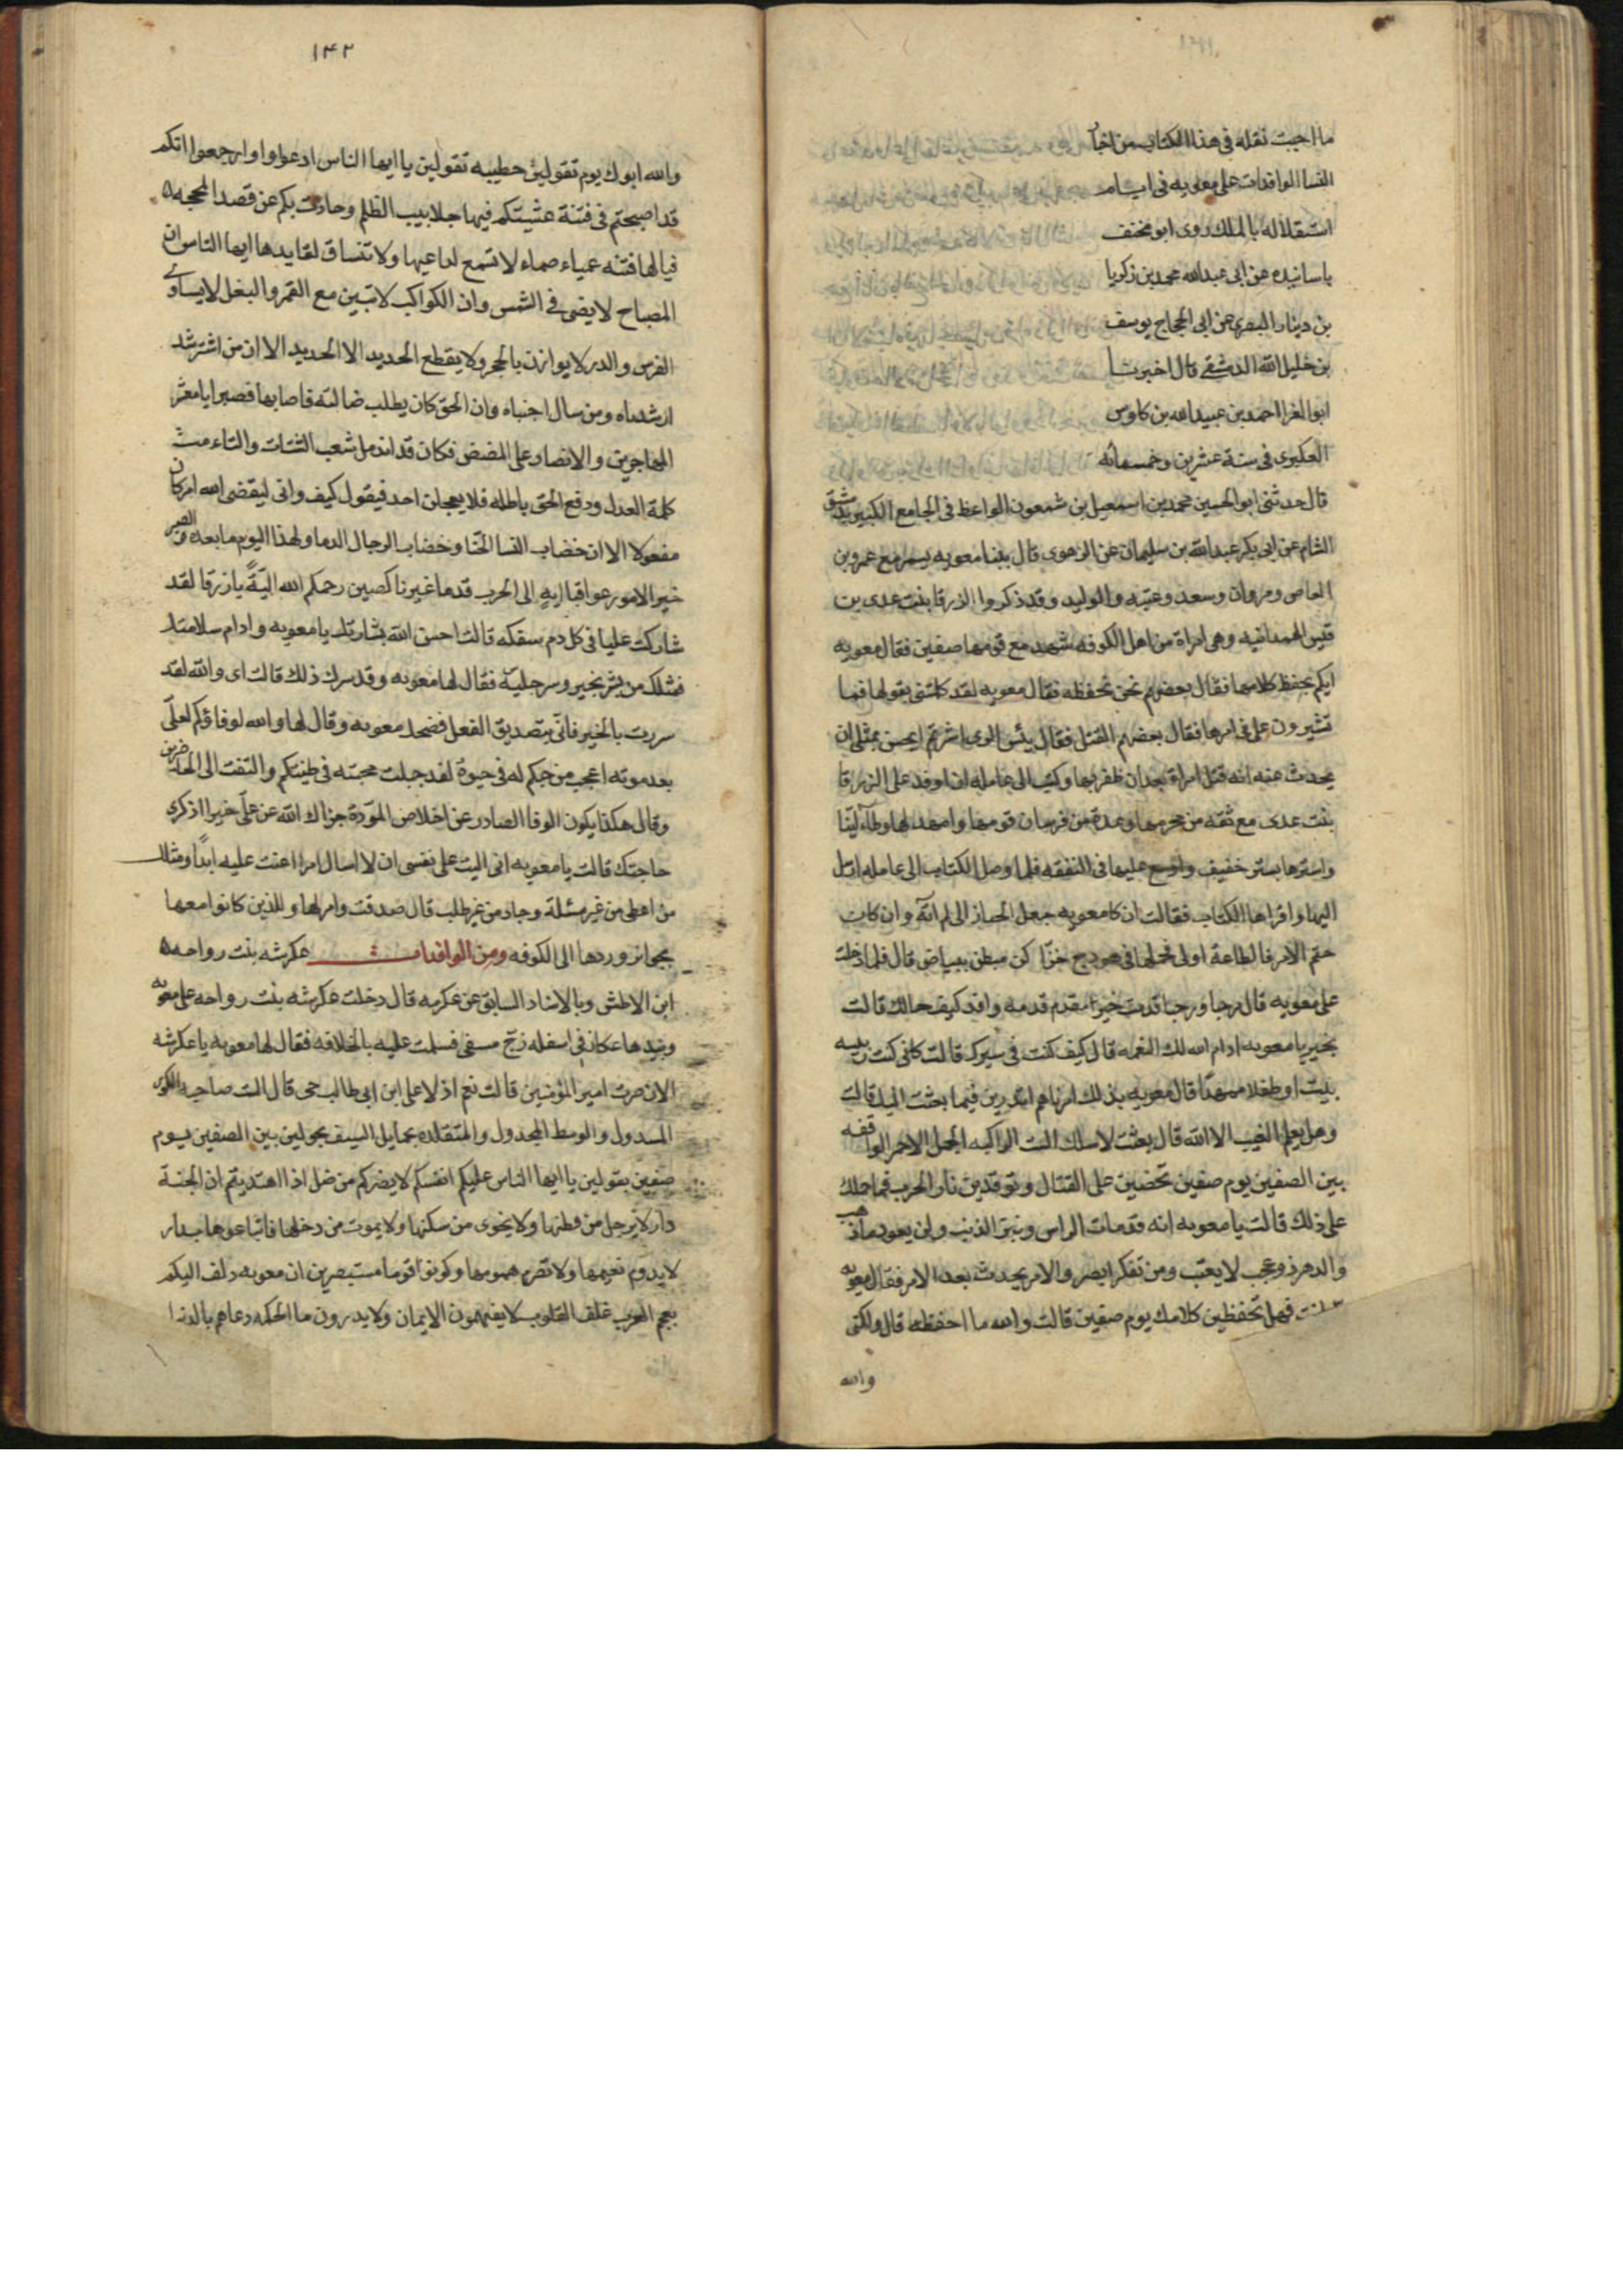 ما احببت نقله فى هذا الكتاب من اخبار
النسا الوافدات على معويه فى ايام
استقلاله بالملك روى ابو مخنف
باسانيده عن ابى عبدالله محمد بن زكريا
بن دينار البصرى عن ابى الحجاج يوسف
بن خليل الله الدمشقى قال اخبرنا
ابو الغرا احمد بن عبيدالله بن كاوس
العكبرى فى سنة عشرين وخمسمائه
قال حدثنى ابو الحسين محمد بن اسمعيل بن شمعون الواعظ فى الجامع الكبير بدمشق
الشام عن ابى بكر عبدالله بن سليمان عن الزهوى قال بينا معويه يسمر مع عمرو بن
العاص ومروان وسعد وعتبه والوليد وقد ذكروا الزرقا بنت عدى بن
قيس الهمدانيه وهى امراة من اهل الكوفه شهدت مع قومها صفين فقال معويه
ايكم يحفظ كلامها فقال بعضهم نحن نحفظه فقال معويه لقد كلمتنى بقولها فما
تشيرون على فى امرها فقال بعضهم القتل فقال بئس الراى اشرتم ايحسن بمثلى ان
يحدث عنه انه قتل امراة بعد ان ظفر بها وكتب الى عامله ان اوفد على الزرقا
بنت عدى مع ثقه من محرمها وعدة من فرسان قومها وامهد لها وطاء لينا
واسترها بستر خفيف واوسع عليها فى النفقه فلما وصل الكتاب الى عامله ارسل
اليها واقراها الكتاب فقالت ان كا معويه جعل الخيار الى لم اته وان كان
حتم الامر فالطاعة اولى فحملها فى هودج خزا كن مبطن ببياض قال فلما دخلت
على معويه قال مرحبا ورحبا قدمت خير مقدم قدمه وافد كيف حالك قالت
بخير يا معويه ادام الله لك النعمه قال كيف كنت فى سيرك قالت كانى كنت ربيبه
بيت او طفلا ممهدا قال معويه بذلك امرناهم اتدرين فيما بعثت اليك قالت
وهل يعلم الغيب الا الله قال بعثت لاسالك الست الراكبه الجمل الاحمر الواقفه
بين الصفين يوم صفين تحضين على القتال وتوقدين نار الحرب فما حملك
على ذلك قالت يا معويه انه قد مات الراس وبتر الذنب ولن يعود ما ذهب
والدهر ذو عجب لا يعتب ومن تفكر ابصر والامر يحدث بعد الامر فقال معويه
فهل تحفظين كلامك يوم صفين قالت والله ما احفظه قال ولكنى
والله
١٤٢
والله ابوك يوم تقولين خطيبه تقولين يا ايها الناس ادعوا وارجعوا انكم
قد اصبحتم فى فتنة عشيتكم فيها جلابيب الظلم وحادت بكم عن قصد المحجه
فيا لها فتنه عمياء صماء لا تسمع لناعيها ولا تنساق لقايدها ايها الناس ان
المصباح لا يضى فى الشمس وان الكواكب لا تبين مع القمر والبغل لا يساوى
الفرس والدر لا يوازن بالحجر ولا يقطع الحديد الا الحديد الا ان من استرشد
ارشدناه ومن سال اجنباه وان الحق كان يطلب ضالته فاصابها فصبرا يا معشر
المهاجرين والانصار على المضض فكان قد اندمل شعب الشتات والتاءمت
كلمة العدل ودفع الحق باطله فلا يعجلن احد فيقول كيف وانى ليقضى الله امرا كان
مفعولا الا ان خضاب النسا الحنا وخضاب الرجال الدما ولهذا اليوم ما بعده والصبر
خير الامور عواقبا ايه الى الحرب قدما غير ناكصين رحمكم الله اليّة يا زرقا لقد
شاركت عليا فى كل دم سفكه قالت احسن الله بشارتك يا معويه وادام سلامتك
فمثلك من بشر بخير وسر جليسه فقال لها معويه وقد سرك ذلك قالت اى والله لقد
سررت بالخير فانّى بتصديق الفعل فضحك معويه وقال لها والله لوفاؤكم لعلى
بعد موته اعجب من حبكم له فى حيوة لقد جبلت محبته فى طينتكم والتفت الى الحاضرين
وقال هكذا يكون الوفا الصادر عن اخلاص المودة جزاك الله عن على خيرا اذكرى
حاجتك قالت يا معويه انى اليت على نفسى ان لا اسال امرا اعنت عليه ابدا ومثلك
من اعطى من غير مسئلة وجاد من غير طلب قال صدقت وامر لها وللذين كانوا معها
بجوايز وردها الى الكوفه ومن الوافدات عكرشه بنت رواحه
ابن الاطش وبالاسناد السابق عن عكرمه قال دخلت عكرشه بنت رواحه على معويه
وبيدها عكاز فى اسفله زج مسقى فسلمت عليه بالخلافه فقال لها معويه يا عكرشه
الان صرت امير المؤمنين قالت نعم اذ لا على ابن ابى طالب حى قال الست صاحبه الكور
المسدول والوسط المجدول والمتقلده بحمايل السيف تجولين بين الصفين يوم
صفين بقولين يا ايها الناس عليكم انفسكم لا يضركم من ضل اذا اهتديتم ان الجنة
دار لا يرحل من قطنها ولا يخوى من سكنها ولا يموت من دخلها فابتاعوها بدار
لا يدوم نعيمها ولا تصرم همومها وكونوا قوما مستبصرين ان معويه دلف اليكم
بعجم العرب غلف القلوب لا يفقهون الايمان ولا يدرون ما الحكمه دعاهم بالدنيا